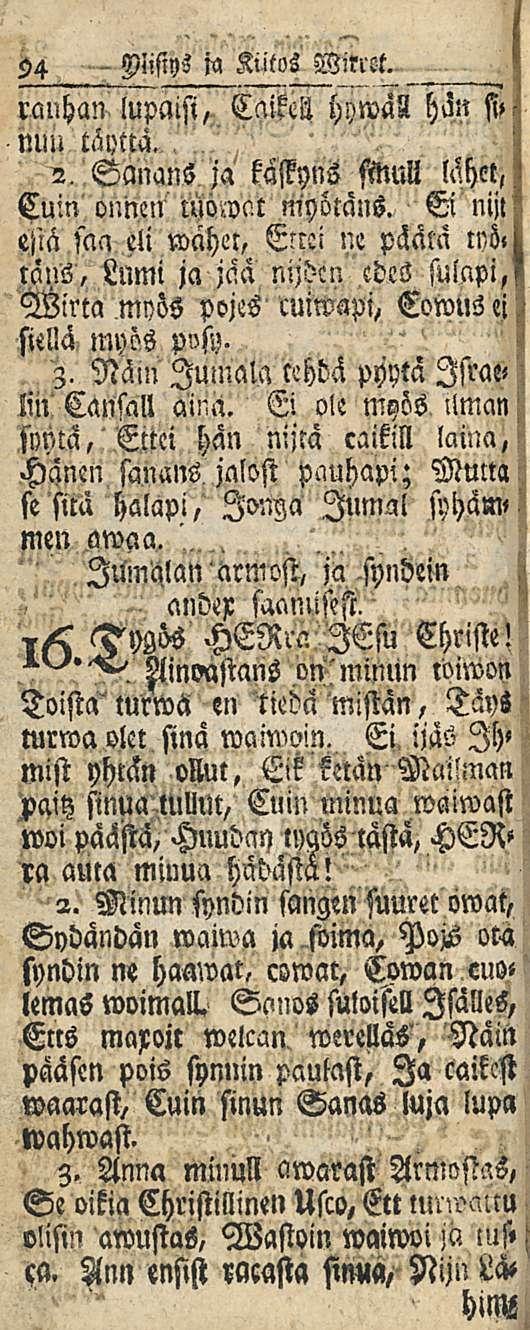 94 Ylistys ja Kiitos Wirret.
rauhan lupaisi, Caikell hywäll hän si-
nun täyttä.
2. Sanans ja käskyns sinull lähet,
Cuin onnen tuowat myötäns. Ei nijt
estä saa eli wähet, Ettei ne päätä työ-
täns, Lumi ja jää nijden edes sulapi,
Wirta myös pojes cuiwapi, Cowus ei
siellä myös pysy.
3. Näin Jumala tehdä pyytä Israe-
lin Cansall aina. Ei ole myös ilman
syytä, Ettei hän nijtä caikill laina,
Hänen sanans jalost pauhapi; Mutta
se sitä halapi, Jonga Jumal sydäm-
men awaa.
Jumalan armost, ja syndein
andex saamisest.
16. Tygös HERra JEsu Christe!
Ainoastans on minun toiwon
Toista turwa en tiedä mistän, Täys
turwa olet sinä waiwoin. Ei ijäs Ih-
mist yhtän ollut, Eik ketän Mailman
paitz sinua tullut, Cuin minua waiwast
woi päästä, Huudan tygös tästä, HER-
ra auta minua hädästä!
2. Minun syndin sangen suuret owat,
Sydändän waiwa ja soima, Pois ota
syndin ne haawat, cowat, Cowan cuo-
lemas woimall. Sanos suloisell Isälles,
Etts maxoit welcan werelläs, Näin
pääsen pois synnin paulast, Ja caikest
waarast, Cuin sinun Sanas luja lupa
wahwast.
3. Anna minull awarast Armostas,
Se oikia Christillinen Usco, Ett turwattu
olisin awustas, Wastoin waiwoi ja tus-
ca. Ann ensist racasta sinua, Nijn Lä-
him-